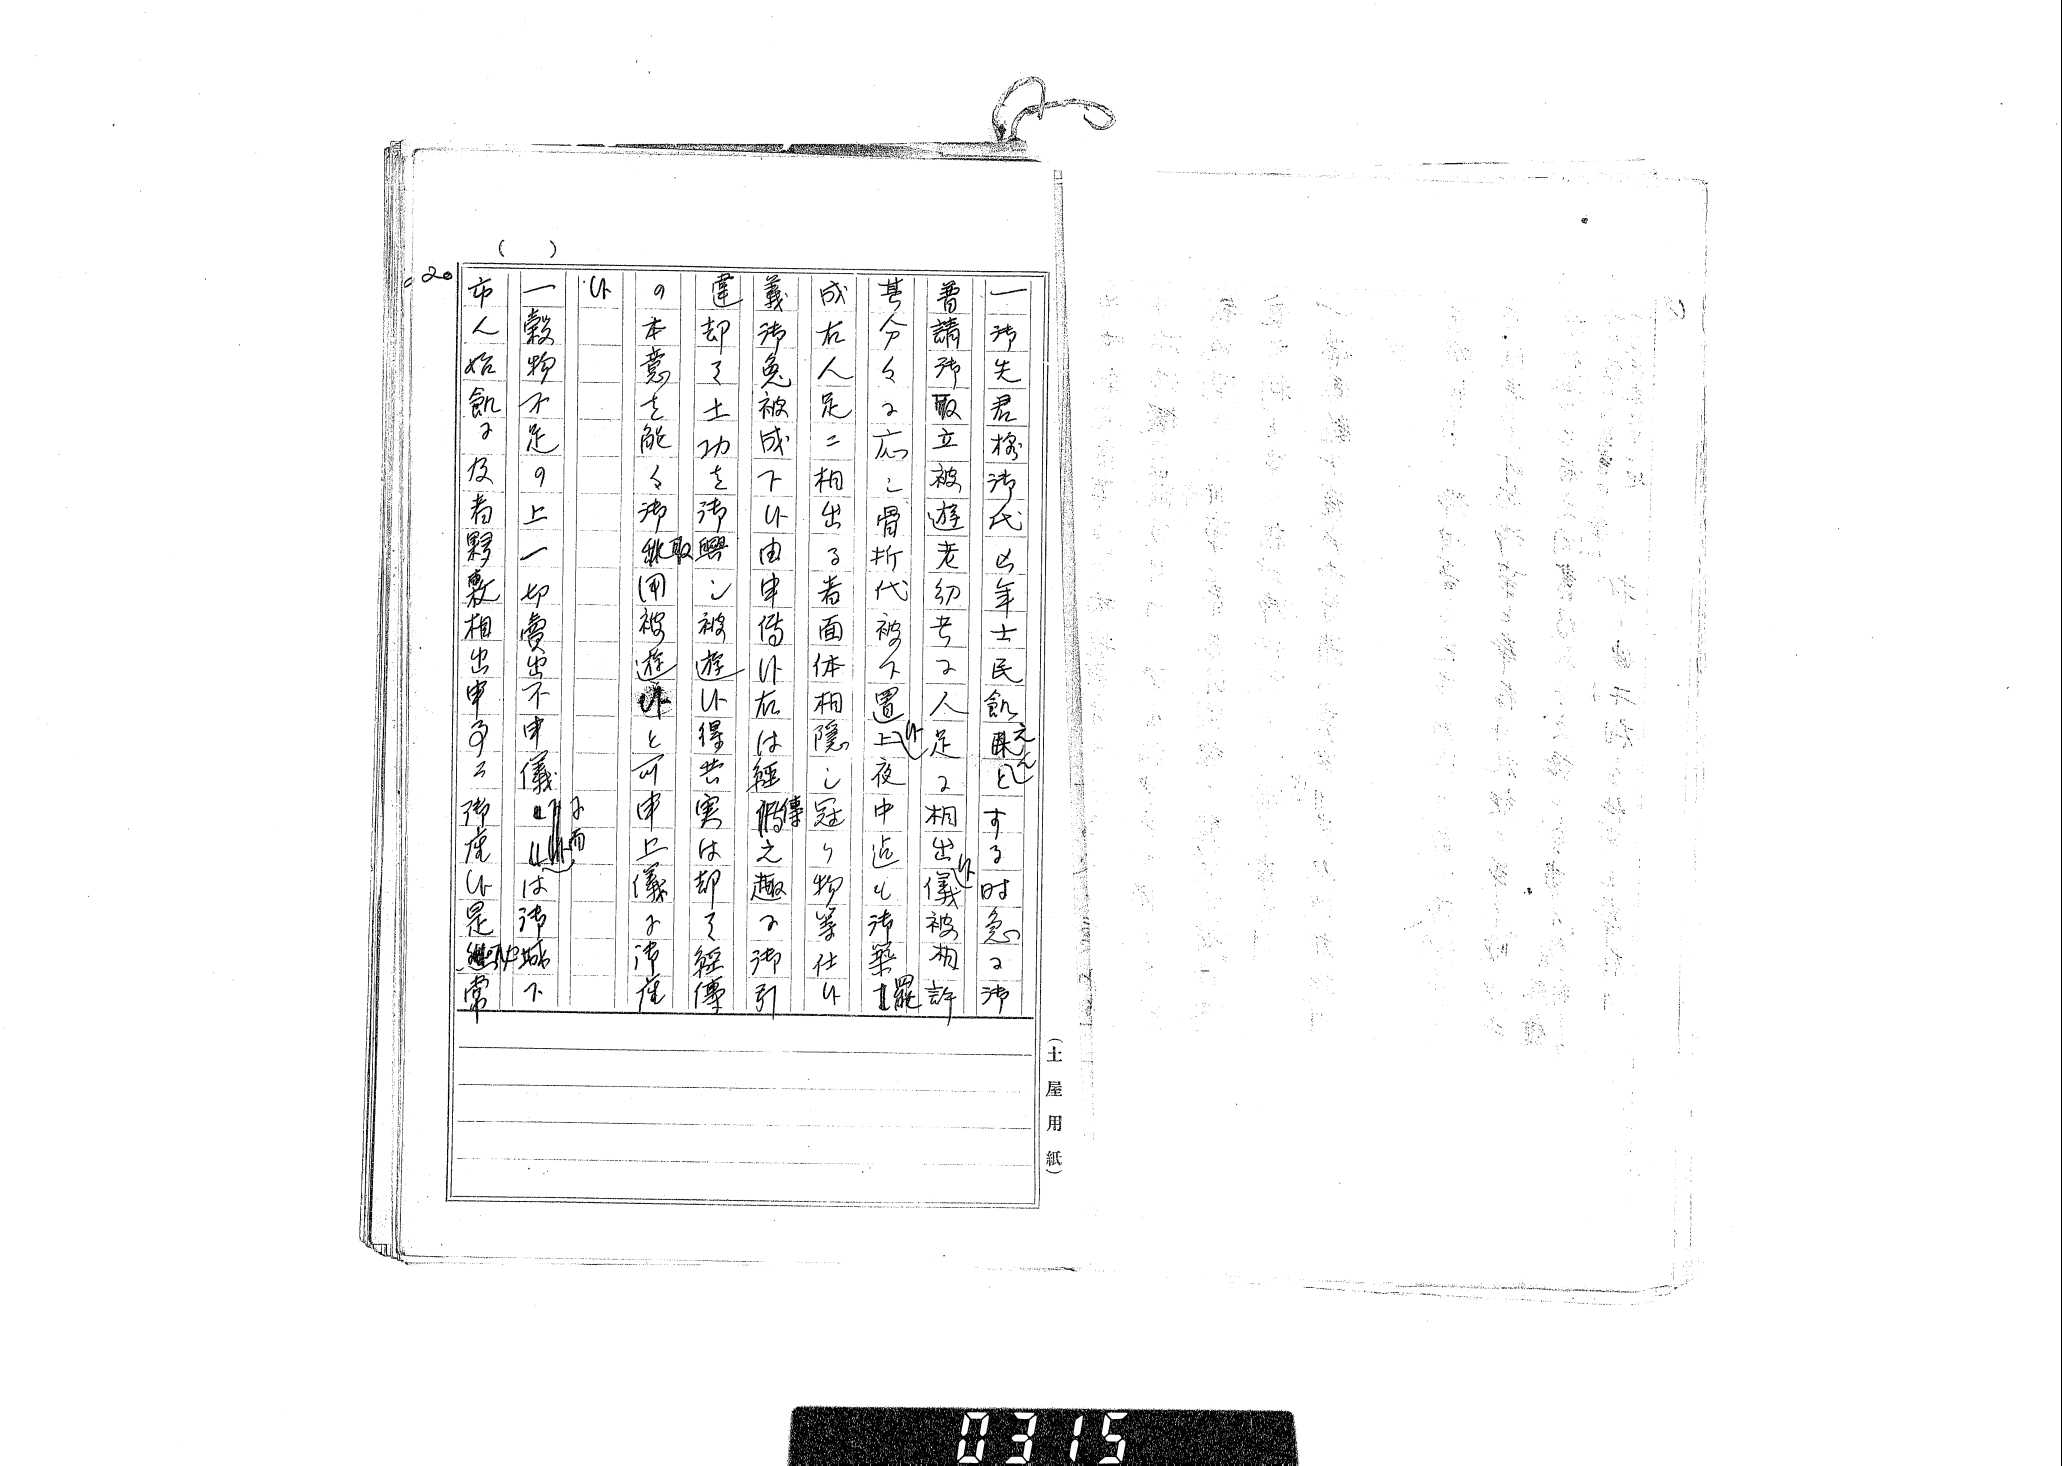 一御先君様御代凶年士民飢えんとする時急に御
普請御取立被遊老幼共に人足に相出候儀被相許
其分々に応し骨折代被下置候上夜中迄も御築
成右人足ニ相出る者面体相隠し冠り物等仕候
義御免被成下候由申傳候右は経傳之趣に御引
違却て土功を御興し被遊候得共実は却て経傳
の本意を能く御取用被遊候と可申上儀に御座
候
一穀物不足の上一切賣出不申儀に而は御城下
市人始飢に及者夥敷相出申事ニ御座候是常
( )
20
(土屋用紙)
0315